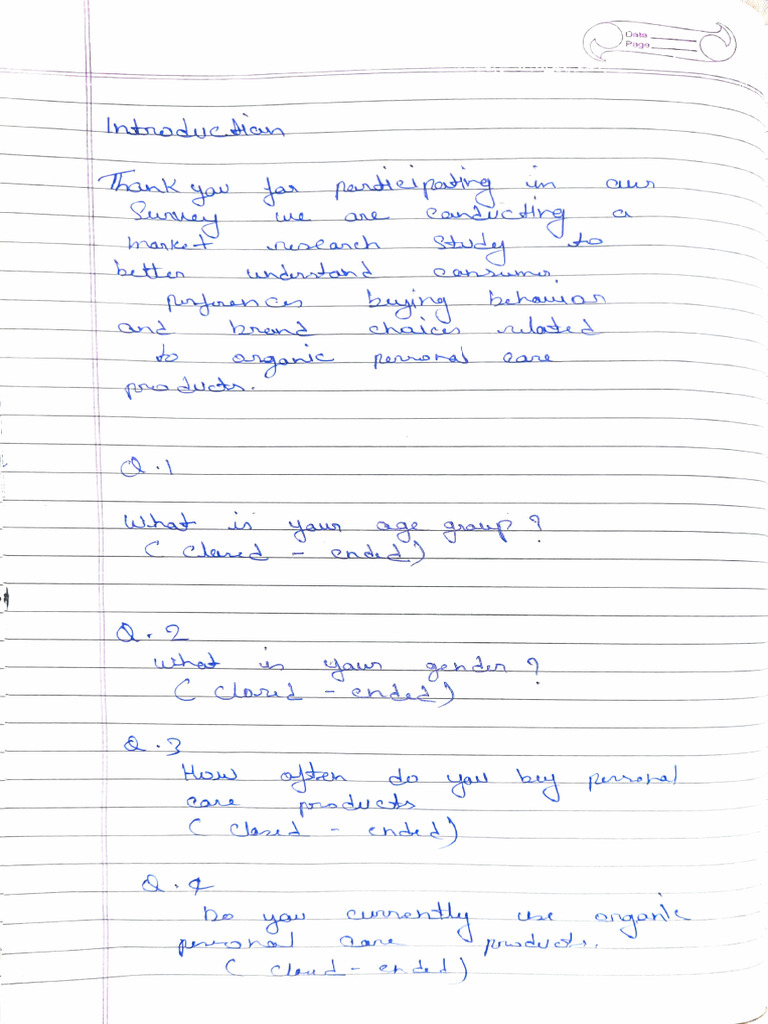 Date
Page
Introduction
Thank you for participating in our
Survey we are conducting a
market research study to
better understand consumer
perferences buying behavior
and brand choices related
to organic personal care
products.
Q.1
What is your age group?
( closed - ended)
Q.2
What is your gender?
( closed - ended)
Q.3
How often do you buy personal
care products
( closed - ended)
Q.4
Do you currently use organic
personal care products.
( closed - ended)